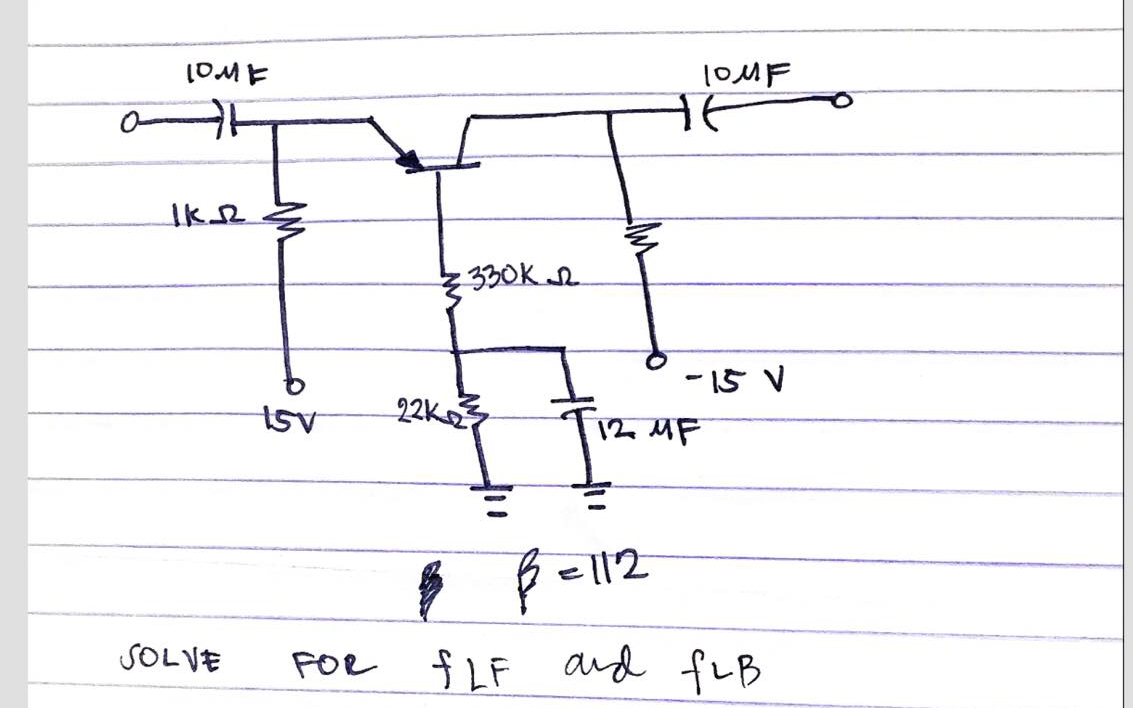 10µF
10µF
1KΩ
330KΩ
-15 V
15V
22KΩ
12 µF
β = 112
SOLVE FOR fLF and fLB